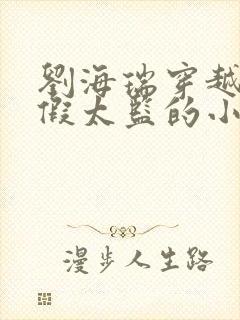 劉海瑞穿越
假太監的小
漫步人生路